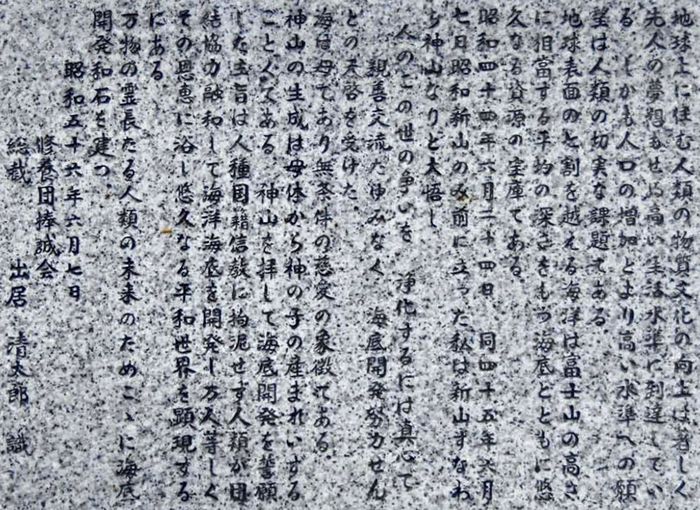 地球上に住む人類の物質文化の向上は著しく
先人の夢想だせぬ高い生活水準に到達してい
る しかも人口の増加とより高い水準への願
望は人類の切実な課題である
地球表面の七割を越える海洋は富士山の高さ
に相當する平均の深さをもつ海底とともに悠
久なる資源の宝庫である
昭和四十四年六月二十四日 同四十五年六月
七日昭和新山のみ前に立った私は新山すなわ
ち神山なりと大悟し
人のこの世の争いを 浄化するには真心で
親善交流たゆみなく 海底開発努力せん
との天啓を受けた
海は母であり無条件の慈愛の象徴である
神山の生成は母体から神の子の産まれいずる
ごとくである 神山を拝して海底開発を誓願
した主旨は人種国籍信教に拘泥せず人類が団
結協力融和して海洋海底を開発し万人等しく
その恩恵に浴し悠久なる平和世界を顕現する
にある
万物の霊長たる人類の未来のためこゝに海底
開発和石を建つ
昭和五十六年六月七日
修養団捧誠会
総裁 出居 清太郎 識